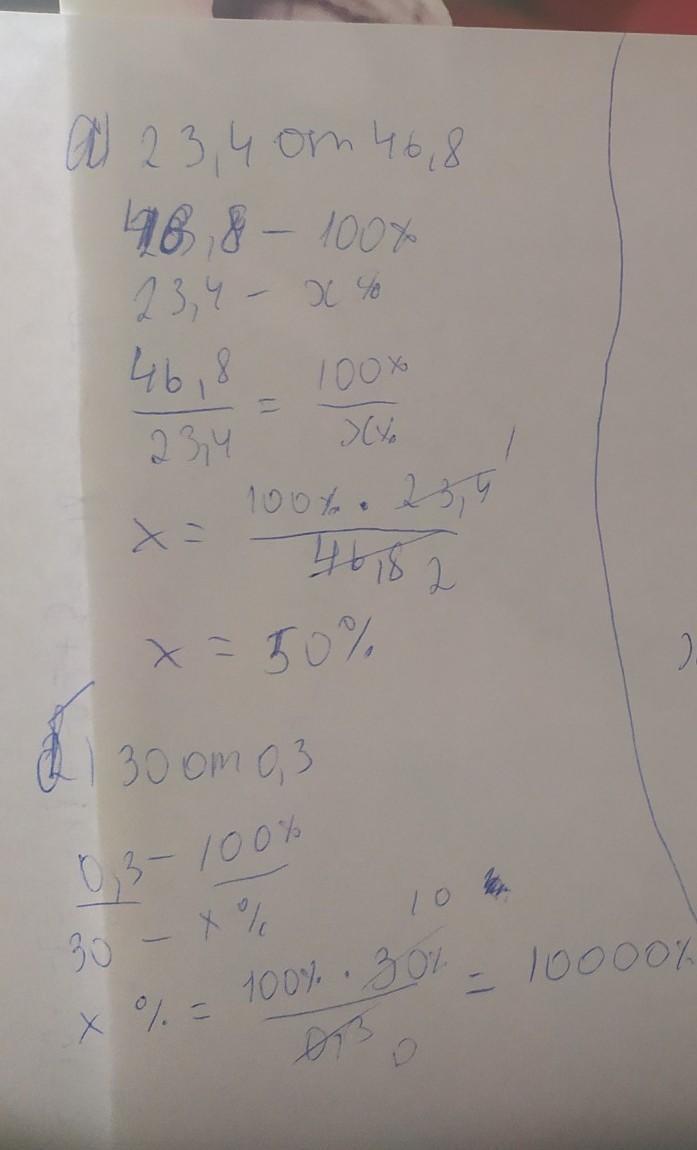 а) 23,4 от 46,8
46,8 – 100%
23,4 – x%
46,8/23,4 = 100%/x%
x = 100% · 23,4/46,8 1 2
x = 50%
30 от 0,3
0,3 – 100%
30 – x%
10
x % = 100% · 30%/0,3 = 10000%
0